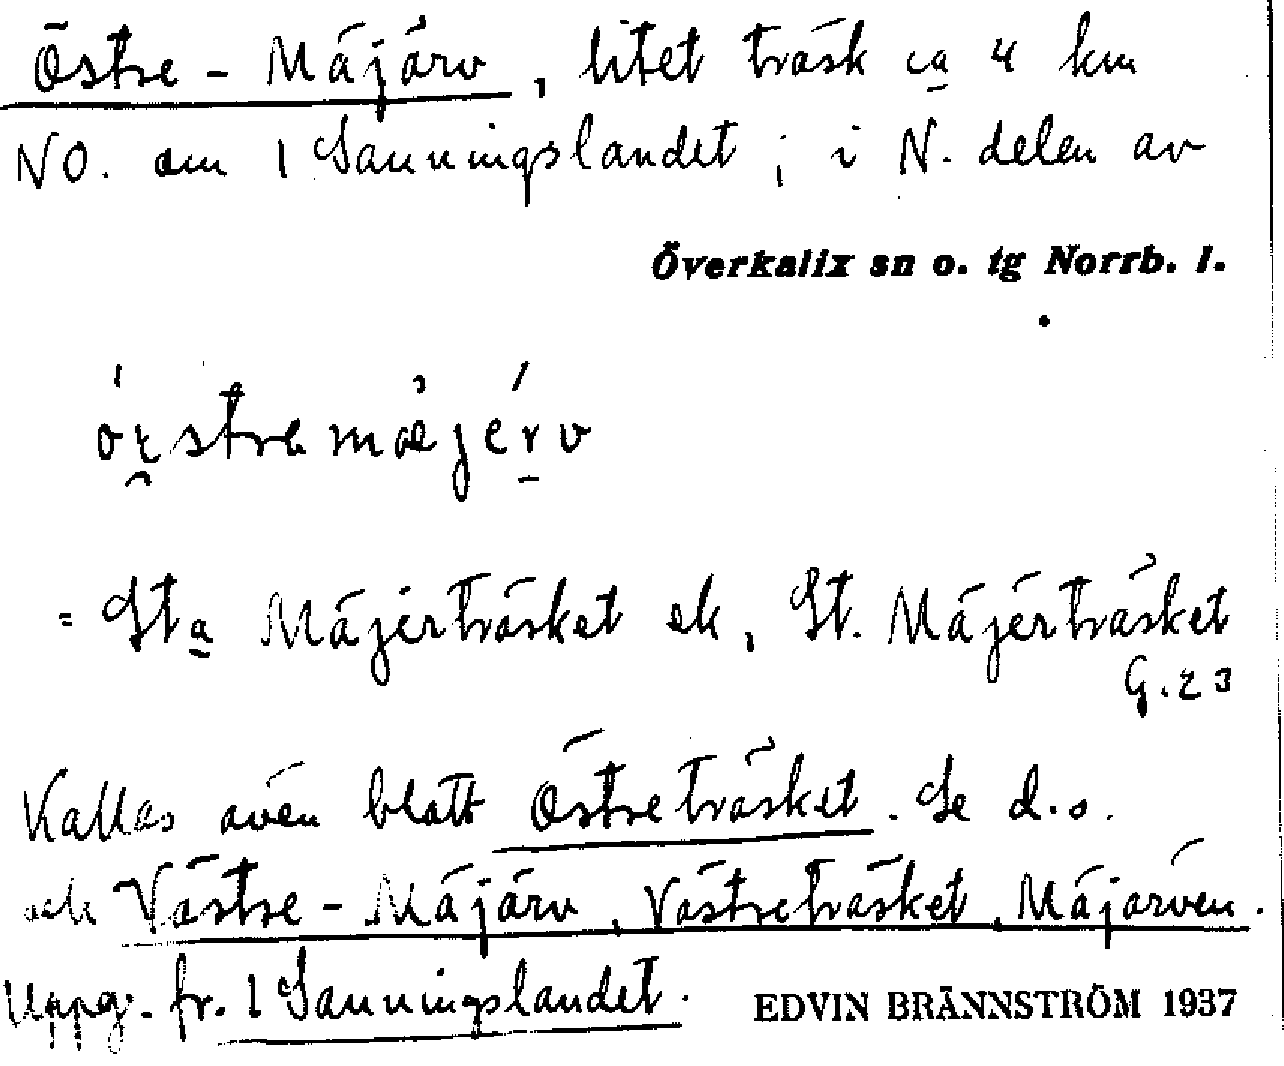 Östre - Mäjärv, litet träsk ca 4 km
NO. om 1 Sanningslandet; i N. delen av
Överkalix sn o. tg Norrb. l.
= Sta Mäjerträsket ek, St. Mäjerträsket
G.23
Kallas även blott Östreträsket. Se d.o.
och Västre - Mäjärv, Västreträsket, Mäjärven.
Uppg. fr. 1 Sanningslandet.
EDVIN BRÄNNSTRÖM 1937